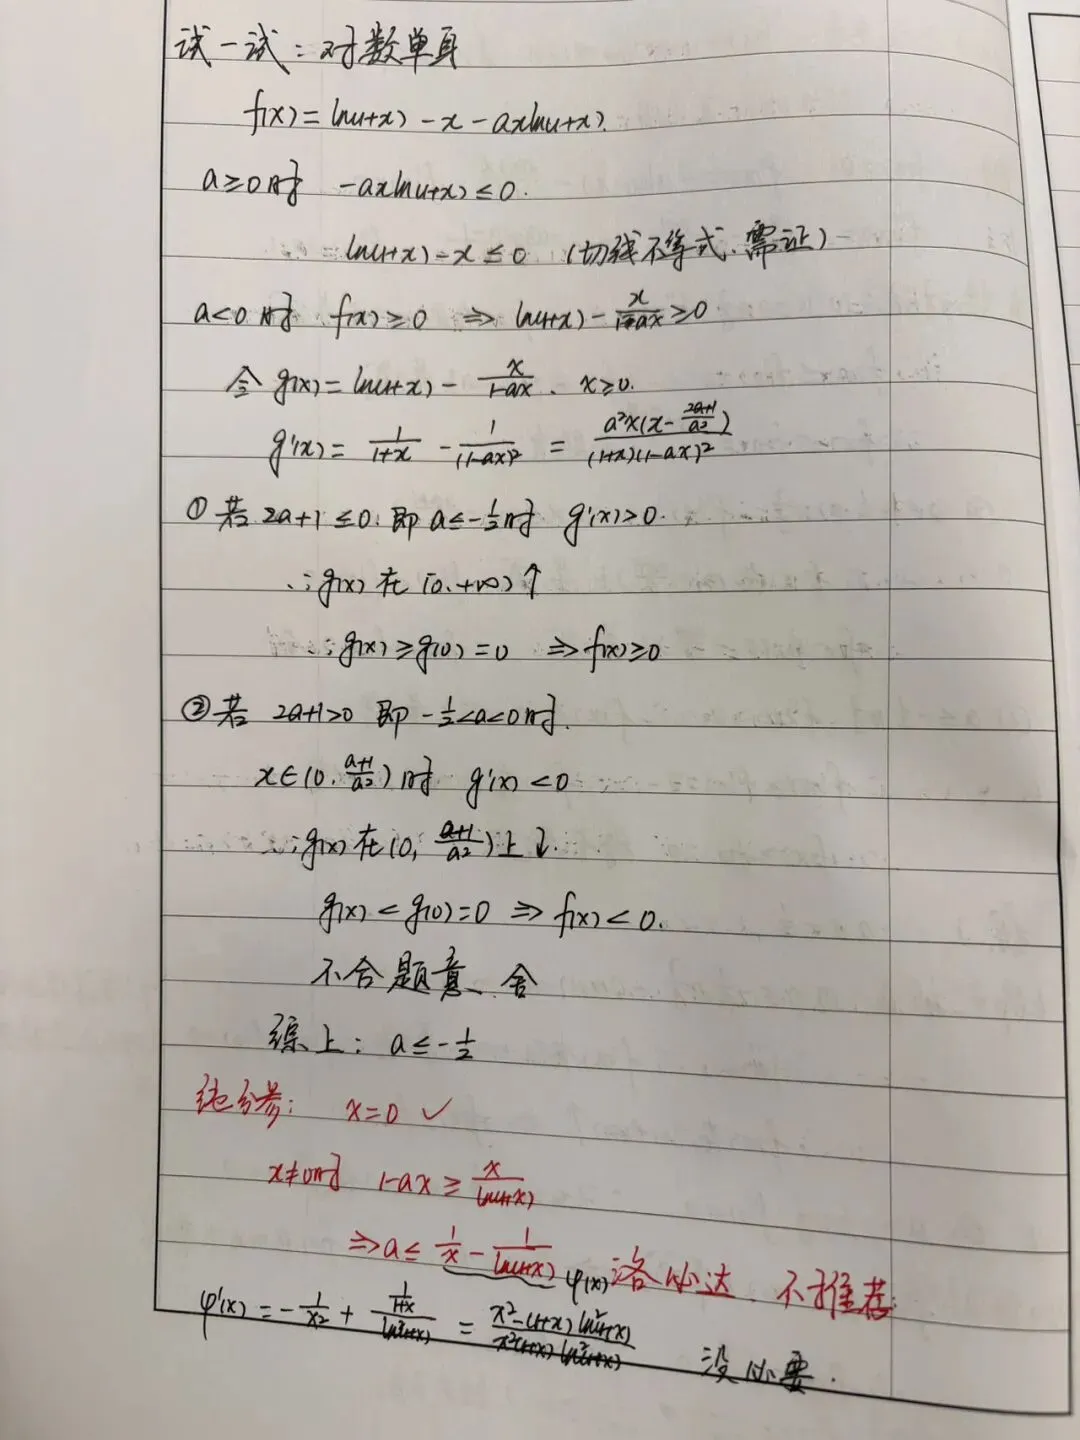 试一试：对数单身
f(x) = ln(1+x) - x - axln(1+x).
a≥0时 -axln(1+x) ≤ 0.
ln(1+x) - x ≤ 0 (切线不等式.需证)
a<0时 f(x) ≥ 0 ⇒ ln(1+x) - x/(1-ax) ≥ 0
令 g(x) = ln(1+x) - x/(1-ax). x≥0.
g'(x) = 1/(1+x) - 1/(1-ax)² = a²x(x - (2a+1)/a²)/((1+x)(1-ax)²)
① 若 2a+1 ≤ 0. 即 a ≤ -1/2时 g'(x)>0.
∴ g(x) 在 [0.+∞) ↑
∴ g(x) ≥ g(0) = 0 ⇒ f(x) ≥ 0
② 若 2a+1>0 即 -1/2<a<0时.
x∈(0. (a+1)/a²) 时 g'(x) < 0
∴ g(x) 在 (0, (a+1)/a²) 上 ↓.
g(x) < g(0) = 0 ⇒ f(x) < 0.
不合题意、舍
综上: a ≤ -1/2
纯分参: x=0 ✓
x≠0时 1-ax ≥ x/ln(1+x)
⇒ a ≤ 1/x - 1/ln(1+x) φ(x) 洛必达 不推荐.
φ'(x) = -1/x² + (1/(1+x))/ln²(1+x) = (x² - (1+x)ln²(1+x))/(x²(1+x)ln²(1+x)) 没必要.